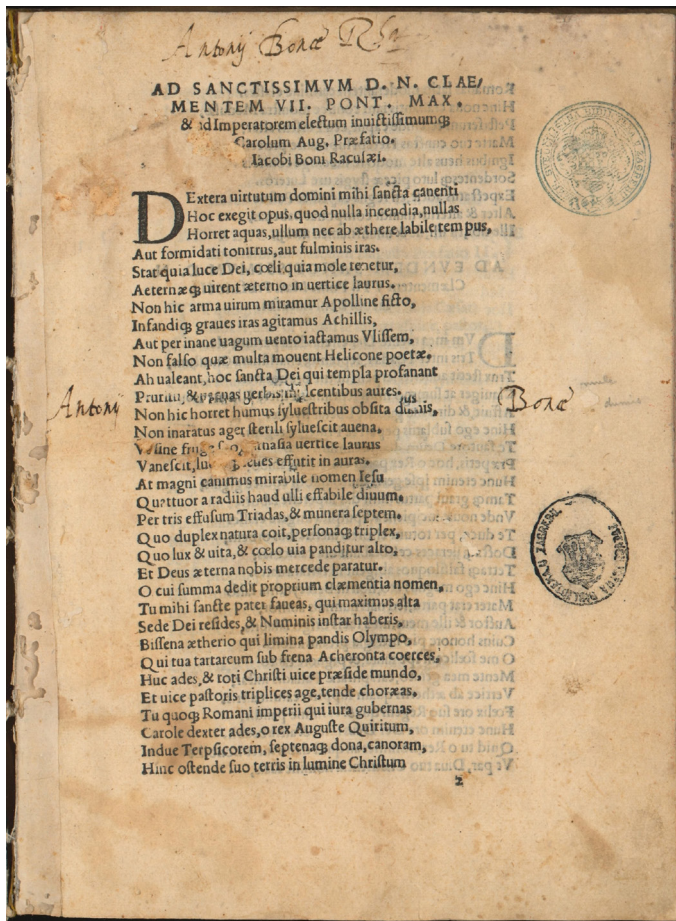 Antonij Bonæ
AD SANCTISSIMVM D. N. CLAE/
MENTEM VII. PONT. MAX.
& id Imperatorem electum inuictissimumq;
Carolum Aug. Præfatio.
Iacobi Boni Racusæi.
DExtera uirtutum domini mihi sancta canenti
Hoc exegit opus, quod nulla incendia, nullas
Horret aquas, ullum nec ab æthere labile tempus,
Aut formidati tonitrus, aut fulminis iras.
Stat quia luce Dei, cœli quia mole tenetur,
Aeternæq; uirent æterno in uertice laurus.
Non hic arma uirum miramur Apolline ficto,
Infandiq; graues iras agitamus Achillis,
Aut per inane uagum uento iactamus Vlissem,
Non falso quæ multa mouent Helicone poetæ.
Ah ualeant, hoc sancta Dei qui templa profanant
aures.
Antonij
Non hic horret humus syluestribus obsita dumis,
Bonæ
Non inaratus ager sterili syluescit auena.
uertice laurus
Vanescit, effutit in auras.
At magni canimus mirabile nomen Iesu
Quattuor a radiis haud ulli effabile diuum.
Per tris effusum Triadas, & munera septem.
Quo duplex natura coit, personaq; triplex,
Quo lux & uita, & cœlo uia panditur alto,
Et Deus æterna nobis mercede paratur.
O cui summa dedit proprium clæmentia nomen,
Tu mihi sancte pater faueas, qui maximus alta
Sede Dei resides, & Numinis instar haberis,
Bissena ætherio qui limina pandis Olympo,
Qui tua tartareum sub frena Acheronta coerces,
Huc ades, & toti Christi uice præside mundo,
Et uice pastoris triplices age, tende choræas.
Tu quoq; Romani imperii qui iura gubernas
Carole dexter ades, o rex Auguste Quiritum,
Indue Terpsicorem, septenaq; dona, canoram,
Hinc ostende suo terris in lumine Christum
2